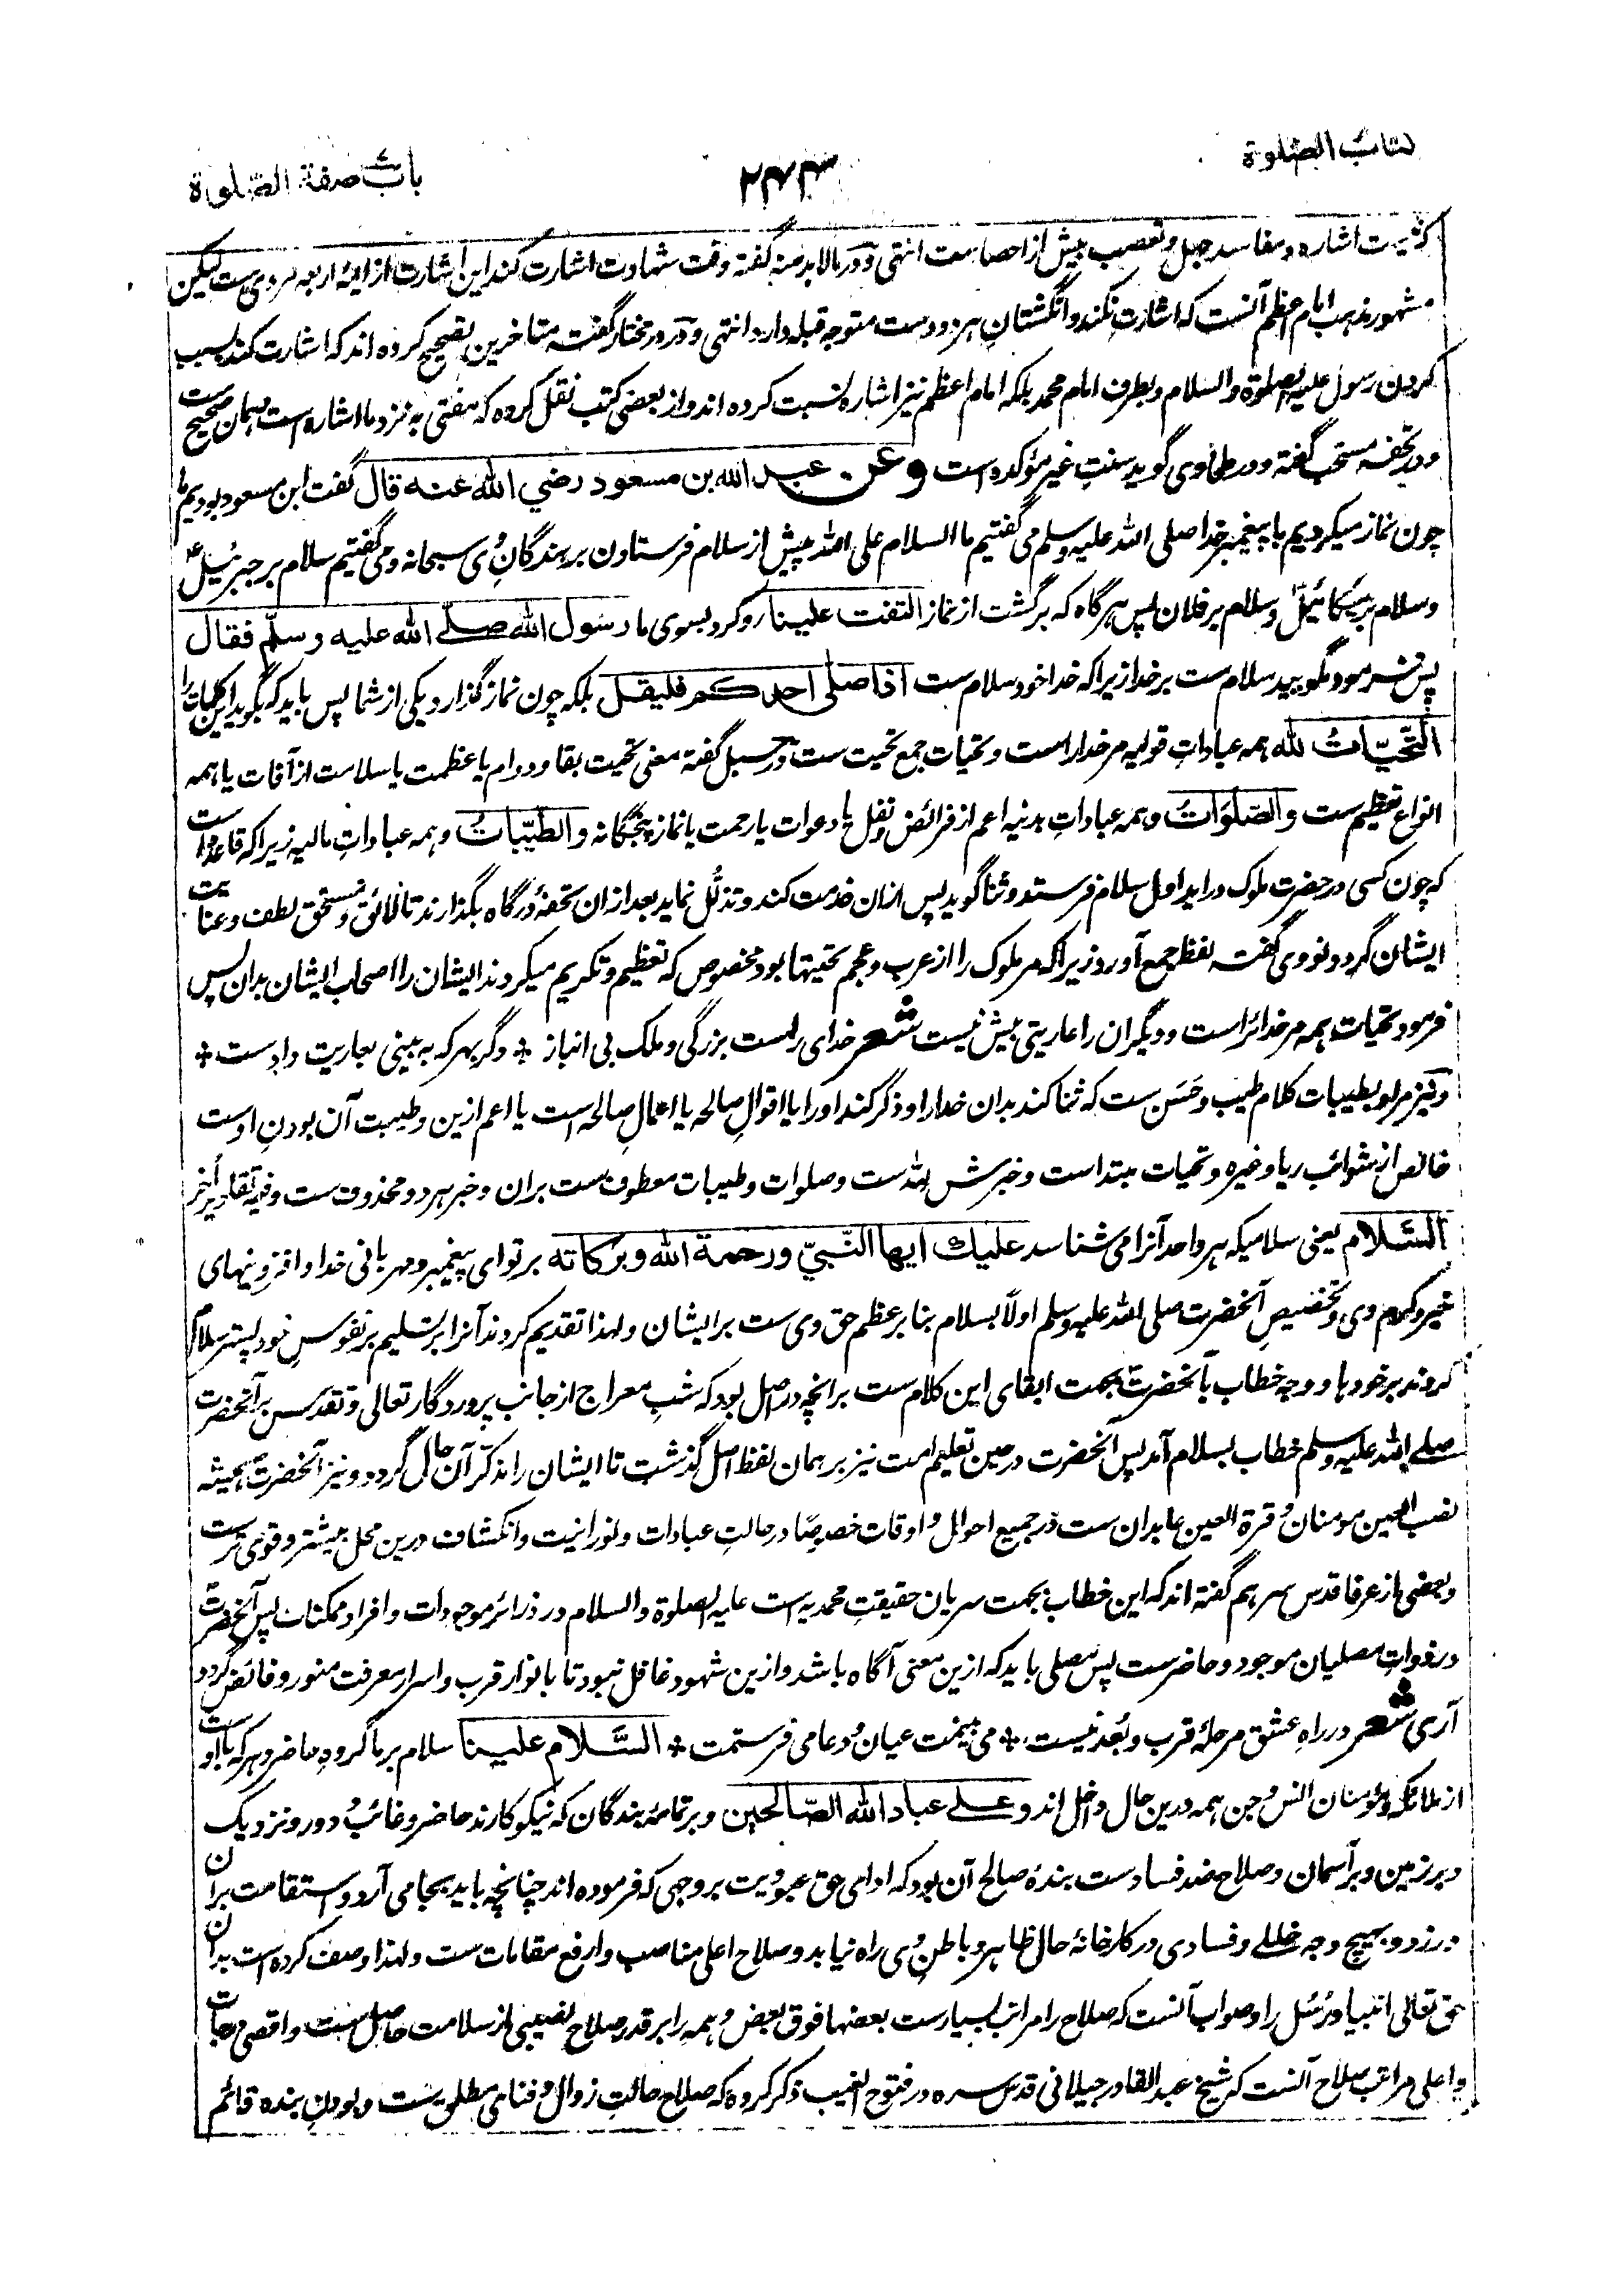 کتاب الصّلوة
۲۴۳
باب صفة الصّلوة
اشاره و مفاسد جهل و تعصب بیش از احصاست انتهی و در مالابدمنه گفته وقت شهادت اشارت کند این اشارت از ایمهٔ اربعه مرویست لیکن
مشهور مذهب امام اعظم آنست که اشارت نکند و انگشتان هر دو دست متوجه قبله دارد انتهی و در در مختار گفته متاخرین تصحیح کرده اند که اشارت کند بسبب
کردن رسول علیه الصلوة والسلام و بطرف امام محمد بلکه امام اعظم نیز اشاره نسبت کرده اند و از بعضی کتب نقل کرده که مفتی به نزد ما اشاره است و همان صحیح ست
و در تحفه مستحب گفته و در طحاوی گوید سنت غیر مؤکده است وعن عبد الله بن مسعود رضي الله عنه قال گفت ابن مسعود بودیم ما
چون نماز میکردیم با پیغمبر خدا صلی الله علیه وسلم می گفتیم ما السلام علی الله پیش از سلام فرستادن بر بندگان وی سبحانه و می گفتیم سلام بر جبرئیل ع
و سلام بر میکائیل و سلام بر فلان پس هرگاه که برگشت از نماز التفت علینا رو کرد بسوی ما رسول الله صلے الله علیه وسلّم فقال
پس فرمود مگویید سلام ست بر خدا زیرا که خدا خود سلام ست اذا صلی احدکم فلیقل بلکه چون نماز گذارد یکی از شما پس باید که بگوید این کلمات را
التّحیّاتُ لله همه عبادات قولیه مر خدا راست و تحیات جمع تحیت ست و در سبل گفته معنی تحیت بقا و دوام یا عظمت یا سلامت از آفات یا همه
انواع تعظیم ست والصّلوَاتُ و همه عبادات بدنیه اعم از فرائض و نفل یا دعوات یا رحمت یا نماز پنجگانه والطّیّباتُ و همه عبادات مالیه زیرا که قاعده است
که چون کسی در حضرت ملوک در اید اول سلام فرستد و ثنا گوید پس ازان خدمت کند و تذلّل نماید بعد ازان تحفهٔ درگاه بگذارند تا لائق و مستحق لطف و عنایت
ایشان گردد و نووی گفته لفظ جمع آورد زیرا که مر ملوک را از عرب و عجم تحیتها بود مخصوص که تعظیم و تکریم میکردند ایشان را اصحاب ایشان بدان پس
فرمود تحیات همه مر خدائراست و دیگران را عاریتی بیش نیست شعر خدای راست بزرگی و ملک بی انباز * دگر بهر که به بینی بعاریت دادست *
و نیز مراد بطیبات کلام طیب و حَسَن ست که ثنا کند بدان خدا را و ذکر کند او را یا اقوال صالحه یا اعمالِ صالحه است یا اعم ازین و طیبیت آن بودن اوست
خالص از شوائب ریا و غیره و تحیات مبتداست و خبرش لله ست و صلوات و طیبات معطوف ست بران و خبر هر دو محذوف ست و فیه تقادیر اُخر
السَّلام یعنی سلامیکه هر واحد آنرا می شناسد علیك ایها النّبيّ ورحمة الله وبرکاته بر تو ای پیغمبر و مهربانی خدا و افزونیهای
خیر و کرم وی و تخصیص آنحضرت صلی الله علیه وسلم اولاً بسلام بنا بر عظم حق وی ست بر ایشان و لهذا تقدیم کردند آنرا بر تسلیم بر نفوس خود پستر سلام
کردند بر خودها و وجه خطاب بآنحضرت بجهت ابقای این کلام ست بر انچه در اصل بود که شب معراج از جانب پروردگار تعالی و تقدس بر آنحضرت
صلے الله علیه وسلم خطاب بسلام آمد پس آنحضرت در حین تعلیم امت نیز بر همان لفظ اصل گذاشت تا ایشان را مذکّر آن حال گردد و نیز آنحضرت همیشه
نصب العین مومنان و قرة العین عابدان ست در جمیع احوال و اوقات خصوصًا در حالت عبادات و نورانیت و انکشاف درین محل بیشتر و قوی ترست
و بعضی از عرفا قدس سرهم گفته اند که این خطاب بجهت سریان حقیقت محمدیه است علیه الصلوة والسلام در ذرائر موجودات و افراد ممکنات پس آنحضرت
در ذوات مصلیان موجود و حاضرست پس مصلی باید که ازین معنی آگاه باشد و ازین شهود غافل نبود تا بانوار قرب و اسرار معرفت منور و فائض گردد
آری شعر در راهِ عشق مرحلهٔ قرب و بُعد نیست * می بینمت عیان و دعا می فرستمت * السَّلام علینا سلام بر ما گروه حاضر و هرکه با اوست
از ملائکه و مؤمنان انس و جن همه درین حال داخل اند وعلے عباد الله الصّالحین و بر تمامهٔ بندگان که نیکوکارند حاضر و غائب و دور و نزدیک
و بر زمین و بر آسمان و صلاح ضد فسادست بندهٔ صالح آن بود که ادای حق عبودیت بروجهی که فرموده اند چنانچه باید بجا می آرد و استقامت بران
ورزد و بهیچ وجه خللے و فسادی در کارخانهٔ حال ظاهر و باطن وی راه نیابد و صلاح اعلی مناصب و ارفع مقامات ست و لهذا وصف کرده است بدان
حق تعالی انبیا و رُسُل را و صواب آنست که صلاح را مراتب بسیارست بعضها فوق بعض و همه را بر قدر صلاح نصیبی از سلامت حاصل ست و اقصی درجات
و اعلی مراتب صلاح آنست که شیخ عبد القادر جیلانی قدس سره در فتوح الغیب ذکر کرده که صلاح حالت زوال و فنای مطلق ست و بودن بنده قائم